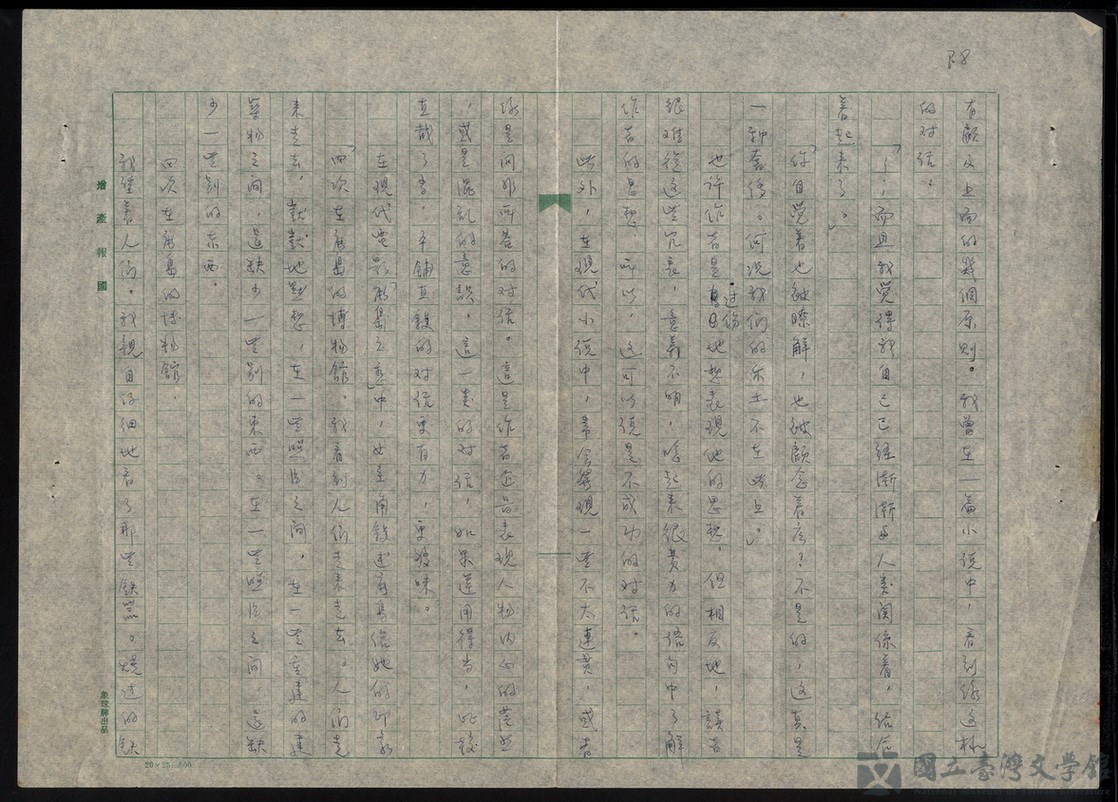 P.8
有顧及上面的幾個原則。我曾在一篇小說中,看到像這樣
的對話。
「,而且我覺得我自己已經漸漸與人類關係着,結合
着起來了。」
「你自覺着也被瞭解,也被顧念着嗎?不是的,這真是
一種奢侈。何況我們的樂土不在此上。」
也許作者是過份地想表現他的思想,但相反地,讀者
很難從這些冗長,意義不明,唸起來很費力的語句中了解
作者的思想,所以,這可以說是不成功的對話。
此外,在現代小說中,常會發現一些不太連貫,或者
像是問非所答的對話。這是作者企昌表現人物內心的茫然
,或是混亂的意識,這一類的對話,如果運用得當,比較
直截了當,平鋪直敍的對話更有力,更獲味。
在現代電影「廣島之戀」中,女主角敍述廣島給她的印象
「四次在廣島的博物館。我看到人們走來走去。人們走
來走去,默默地默想,在一些照片之間,在一些重建的建
築物之間,還缺少一些別的東西。在一些照片之間,還缺
少一些別的東西。
四次在廣島的博物館。
我望着人們。我親自仔細地看了那些鐵器。燒過的鐵
增產報國
象球牌出品
20×25=500
國立臺灣文學館